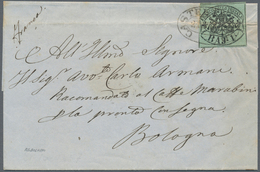 Franca
CAST
BAJ
All'Illmo Signore
Il Sigr Avvto Carlo Armani
Racomandata al Caffe Marabini
pla pronta Consegna
Bologna